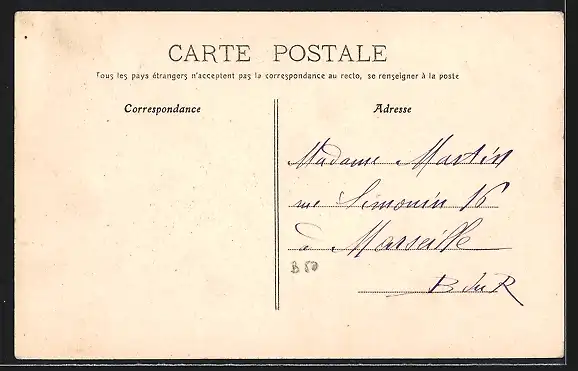 CARTE POSTALE
Tous les pays étrangers n'acceptent pas la correspondance au recto, se renseigner à la poste
Correspondance
Adresse
Madame Martin
rue Simonin 16
à Marseille
B du R
B 50